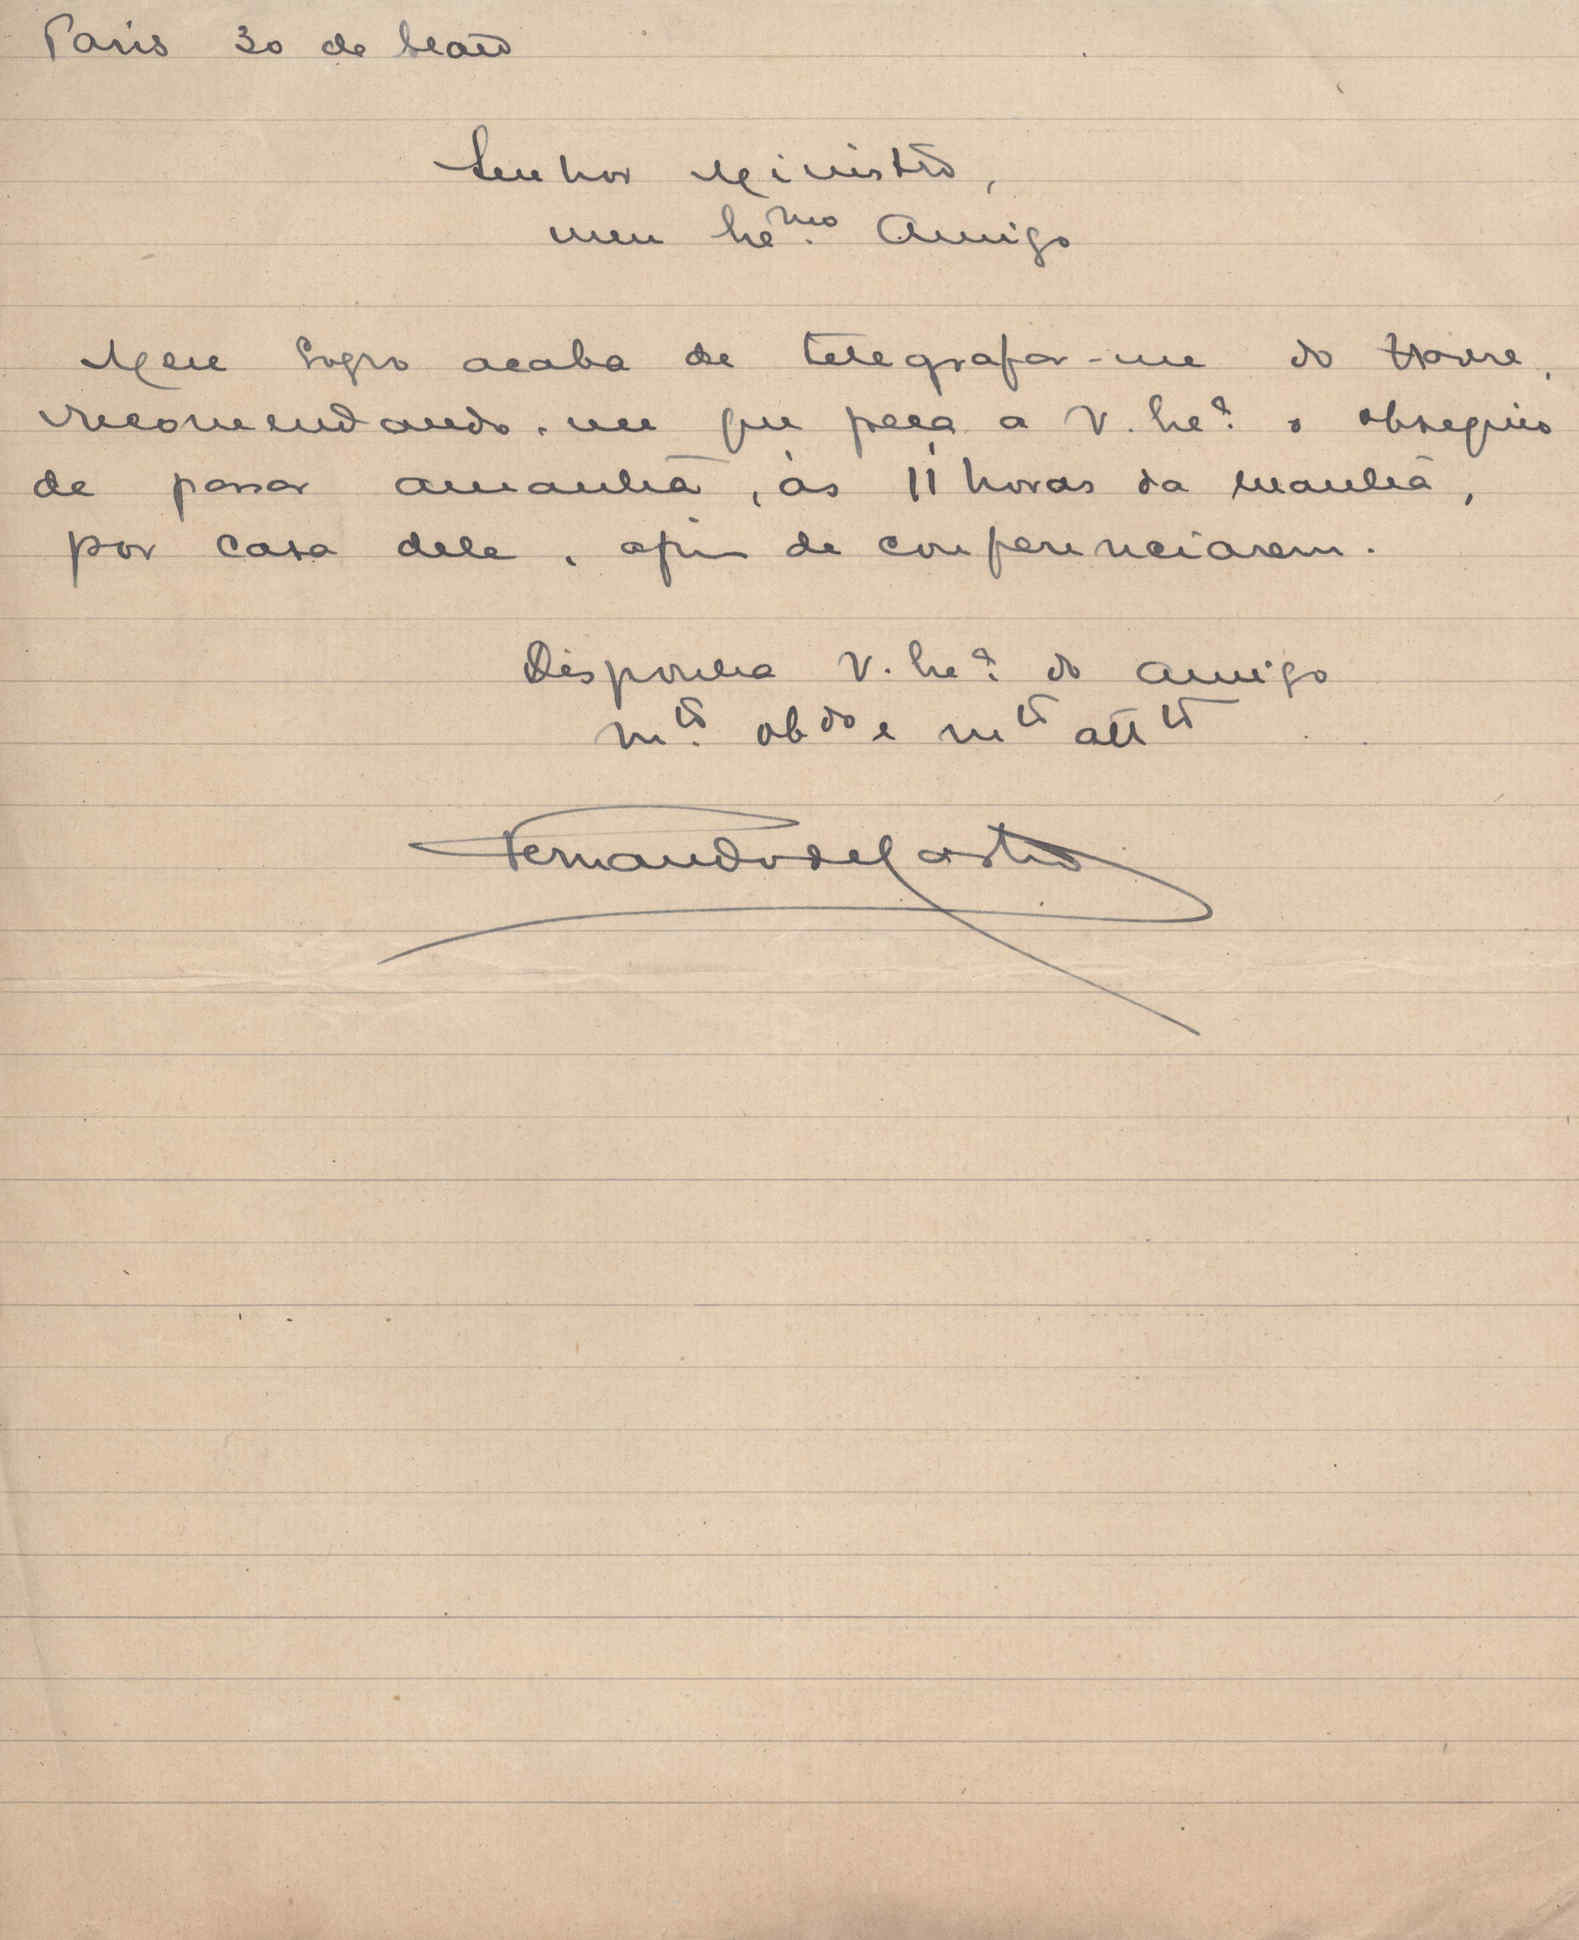 Paris 30 de Março
Senhor Ministro,
meu Ex.mo Amigo
Meu Sogro acaba de telegrafar-me do Havre,
recomendando-me que peça a V. Ex.ª o obsequio
de passar amanhã, ás 11 horas da manhã,
por casa dele, afim de conferenciarem.
Disponha V. Ex.ª do amigo
m.to ob.do e m.to att.to
Fernando de Castro